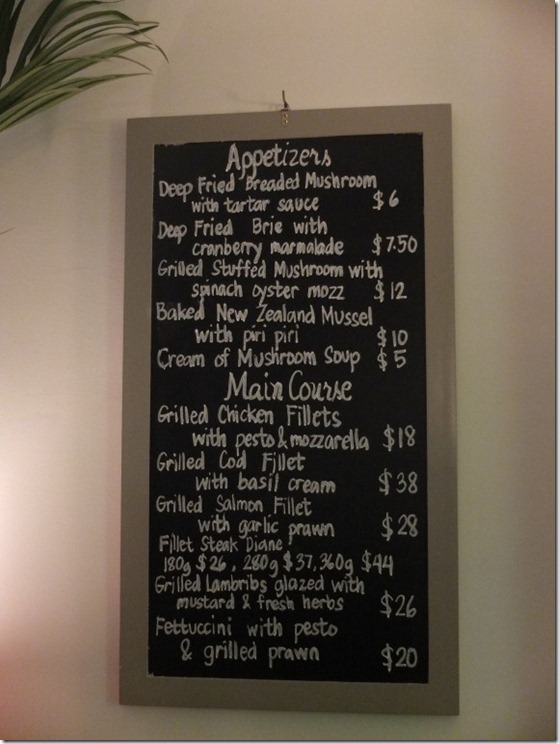 Appetizers
Deep Fried Breaded Mushroom
with tartar sauce $6
Deep Fried Brie with
cranberry marmalade $7.50
Grilled Stuffed Mushroom with
spinach oyster mozz $12
Baked New Zealand Mussel
with piri piri $10
Cream of Mushroom Soup $5
Main Course
Grilled Chicken Fillets
with pesto & mozzarella $18
Grilled Cod Fillet
with basil cream $38
Grilled Salmon Fillet
with garlic prawn $28
Fillet Steak Diane
180g $26, 280g $37, 360g $44
Grilled Lambribs glazed with
mustard & fresh herbs $26
Fettuccini with pesto
& grilled prawn $20